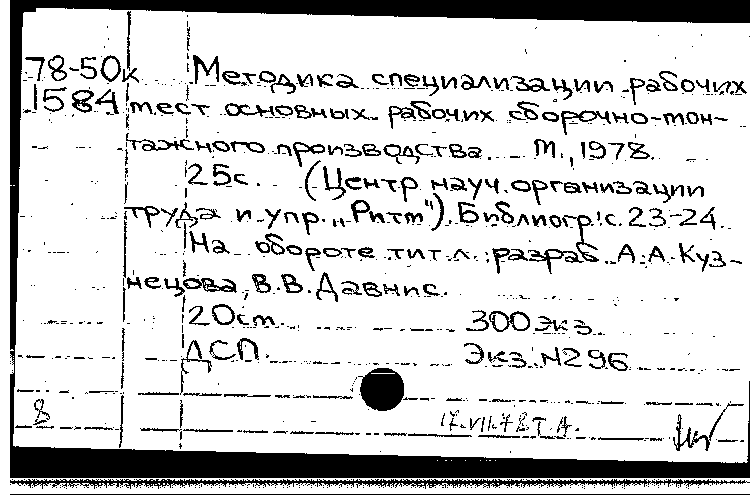 78-50к Методика специализации рабочих
1584 мест основных рабочих сборочно-мон-
тажного производства. М., 1978.
25с. (Центр науч. организации
труда и упр. „Ритм"). Библиогр.: с. 23-24
На обороте тит. л.: разраб. А.А. Куз-
нецова, В.В. Давнис.
20см. 300 экз.
ДСП. Экз. N296
8 17.VII.78 Т.А.